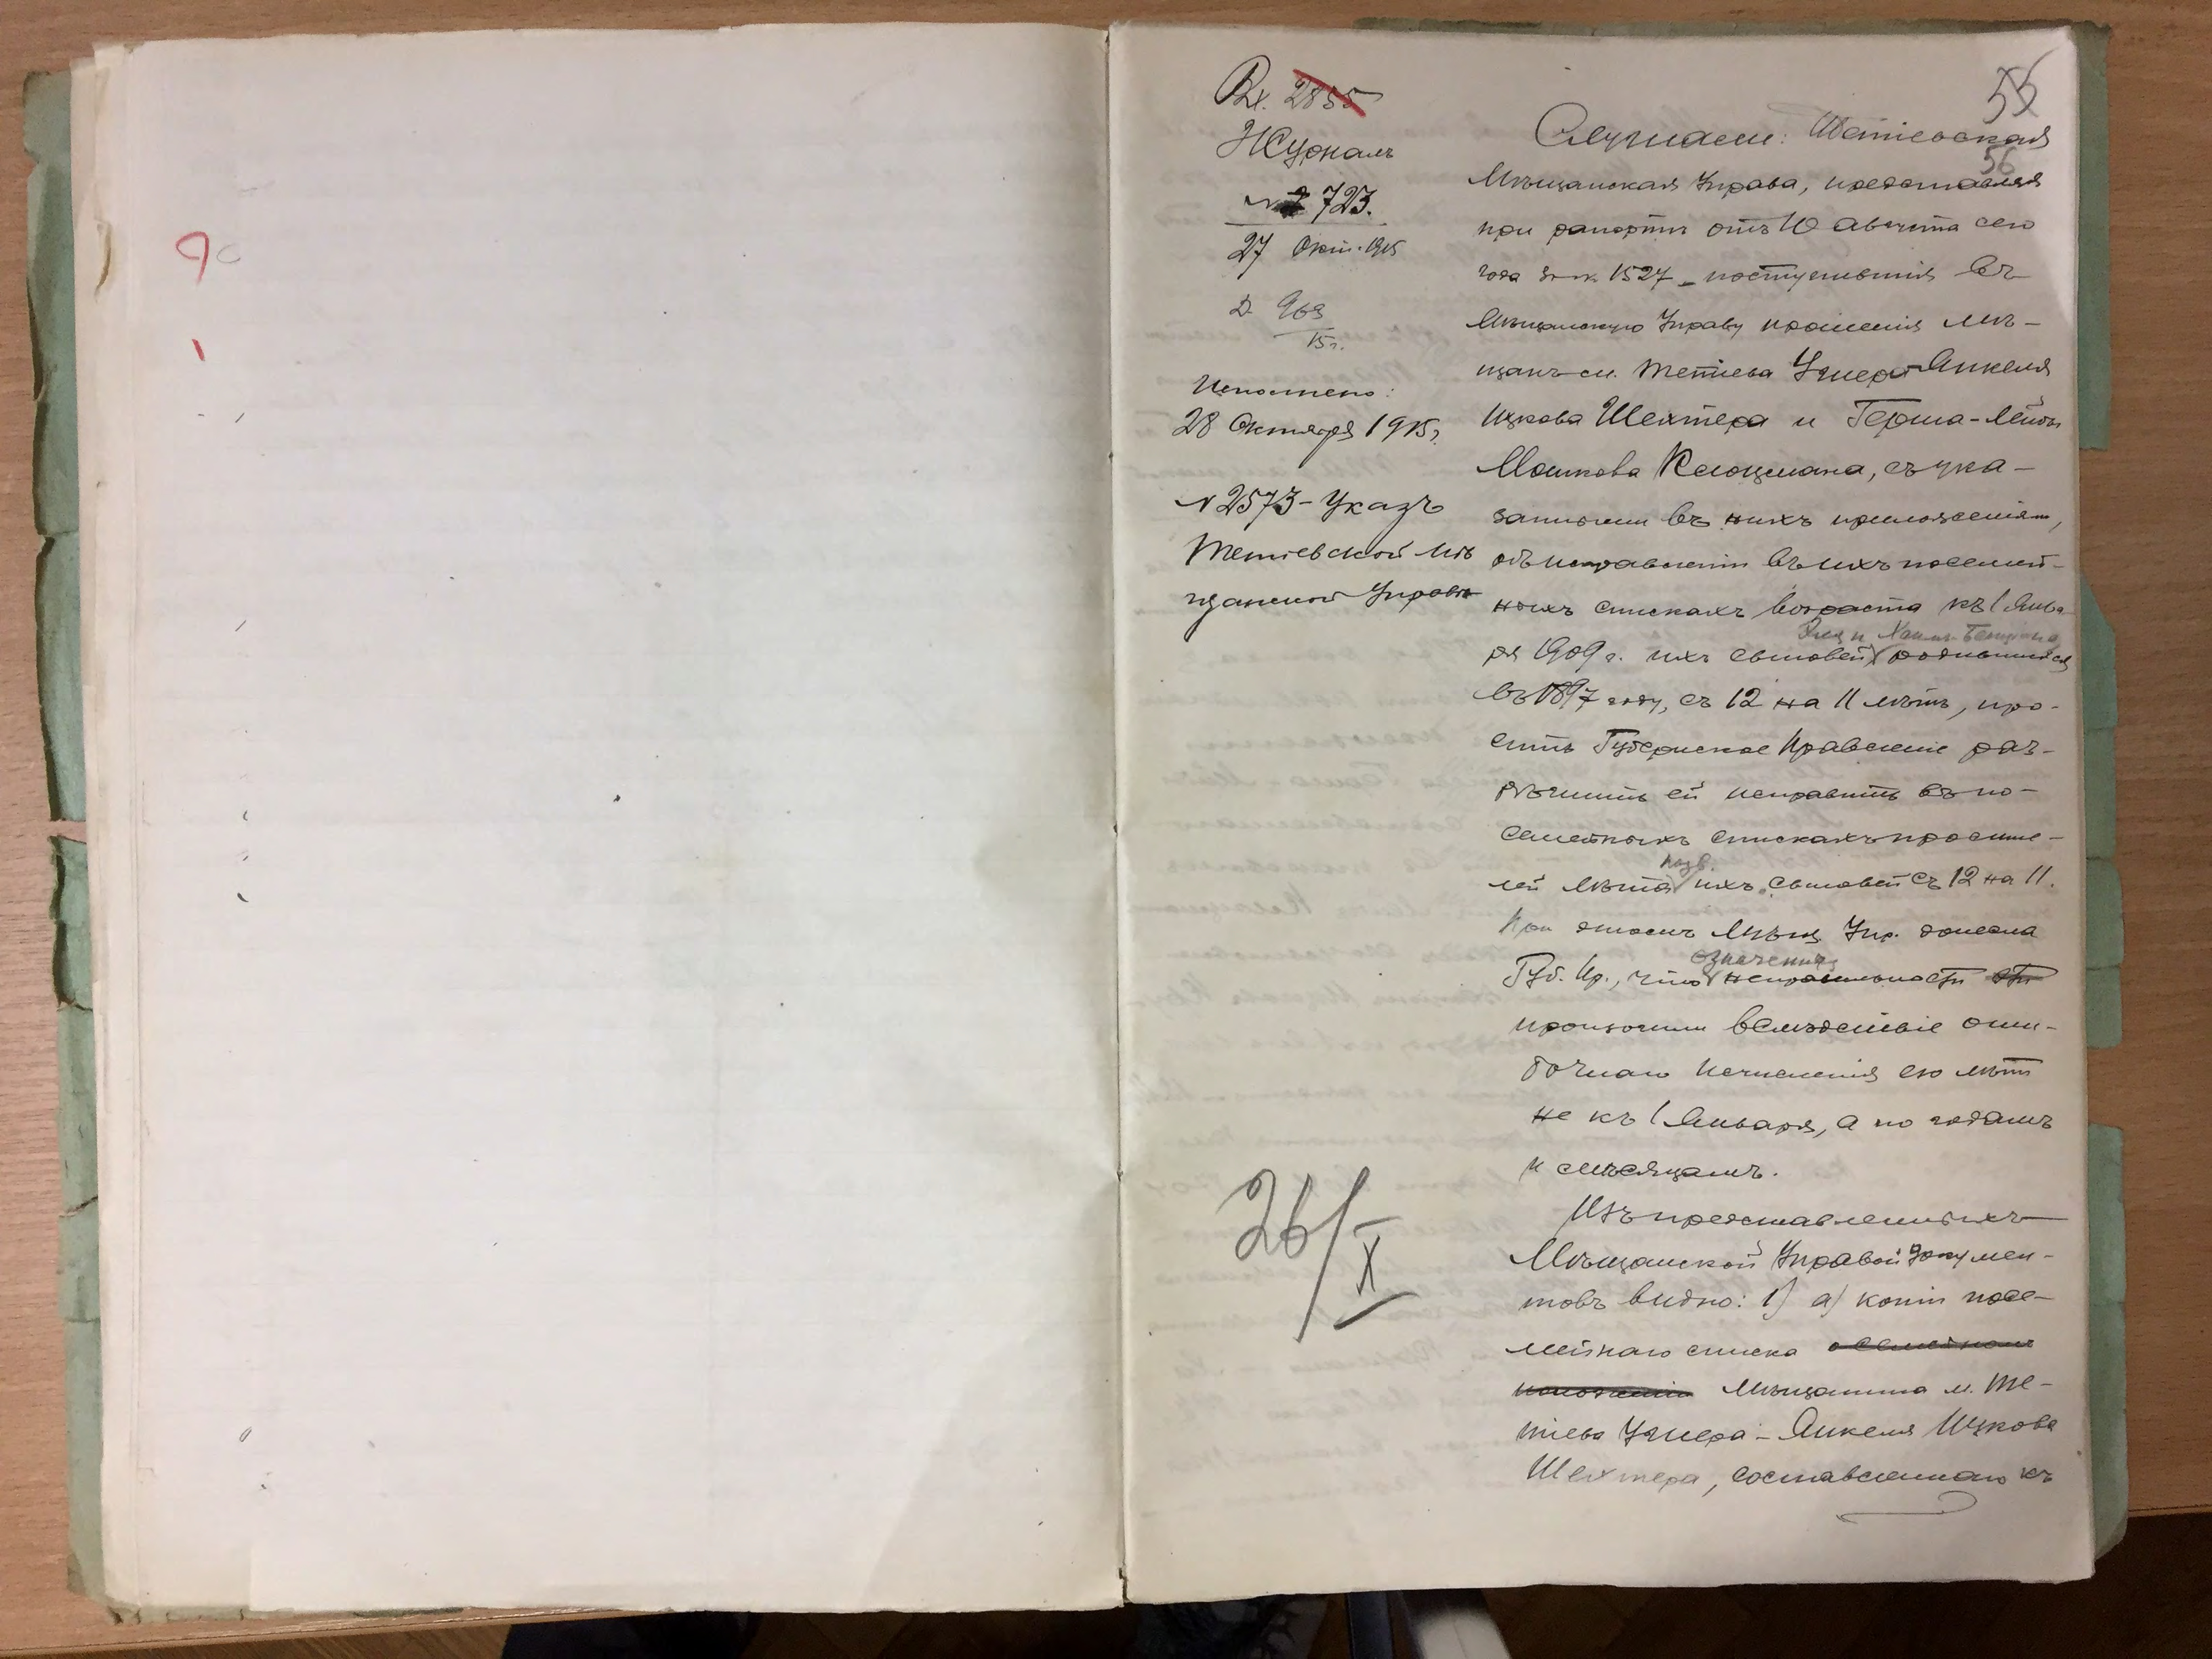 Вх. 2855
Журналъ
№ 723.
27 Окт. 1915
Д. 969
15 г.
Исполнено:
28 Октября 1915 г.
№ 2573 – Указъ
Тетіевской Мѣ
щанской Управѣ
26/X
55
56
Слушали: Тетіевская
Мѣщанская Управа, представляя
при рапортѣ отъ 10 Августа сего
года за № 1527 – поступившія въ
Мѣщанскую Управу прошенія мѣ-
щанъ м. Тетіева Умера-Янкеля
Ицкова Шехтера и Герша-Лейбы
Мошкова Клоцмана, съ ука-
заннымъ въ нихъ приложеніемъ,
объ исправленіи въ ихъ посемей-
ныхъ спискахъ возраста къ 1 Янва
и Хаимъ-
ря 1909 г. ихъ сыновей родившихся
въ 1897 году, съ 12 на 11 лѣтъ, про-
ситъ Губернское Правленіе раз-
рѣшить ей исправить въ по-
семейныхъ спискахъ просите-
назв.
лей лѣта ихъ сыновей съ 12 на 11.
При этомъ Мѣщ. Упр. донесла
означенныя
Губ. Пр., что неправильности эти
произошли вслѣдствіе оши-
бочнаго исчисленія ею лѣтъ
не къ 1 Января, а по годамъ
и мѣсяцамъ.
Изъ представленныхъ
Мѣщанской Управой докумен-
товъ видно: 1) а) копіи посе-
мейнаго списка о семейномъ
положеніи Мѣщанина м. Те-
тіева Умера-Янкеля Ицкова
Шехтера, составленнаго къ